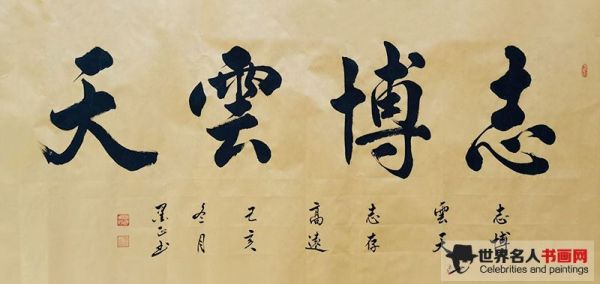 志博雲天
志博
雲天
志存
高遠
己亥
冬月
墨正书
世界名人书画网
Celebrities and paintings